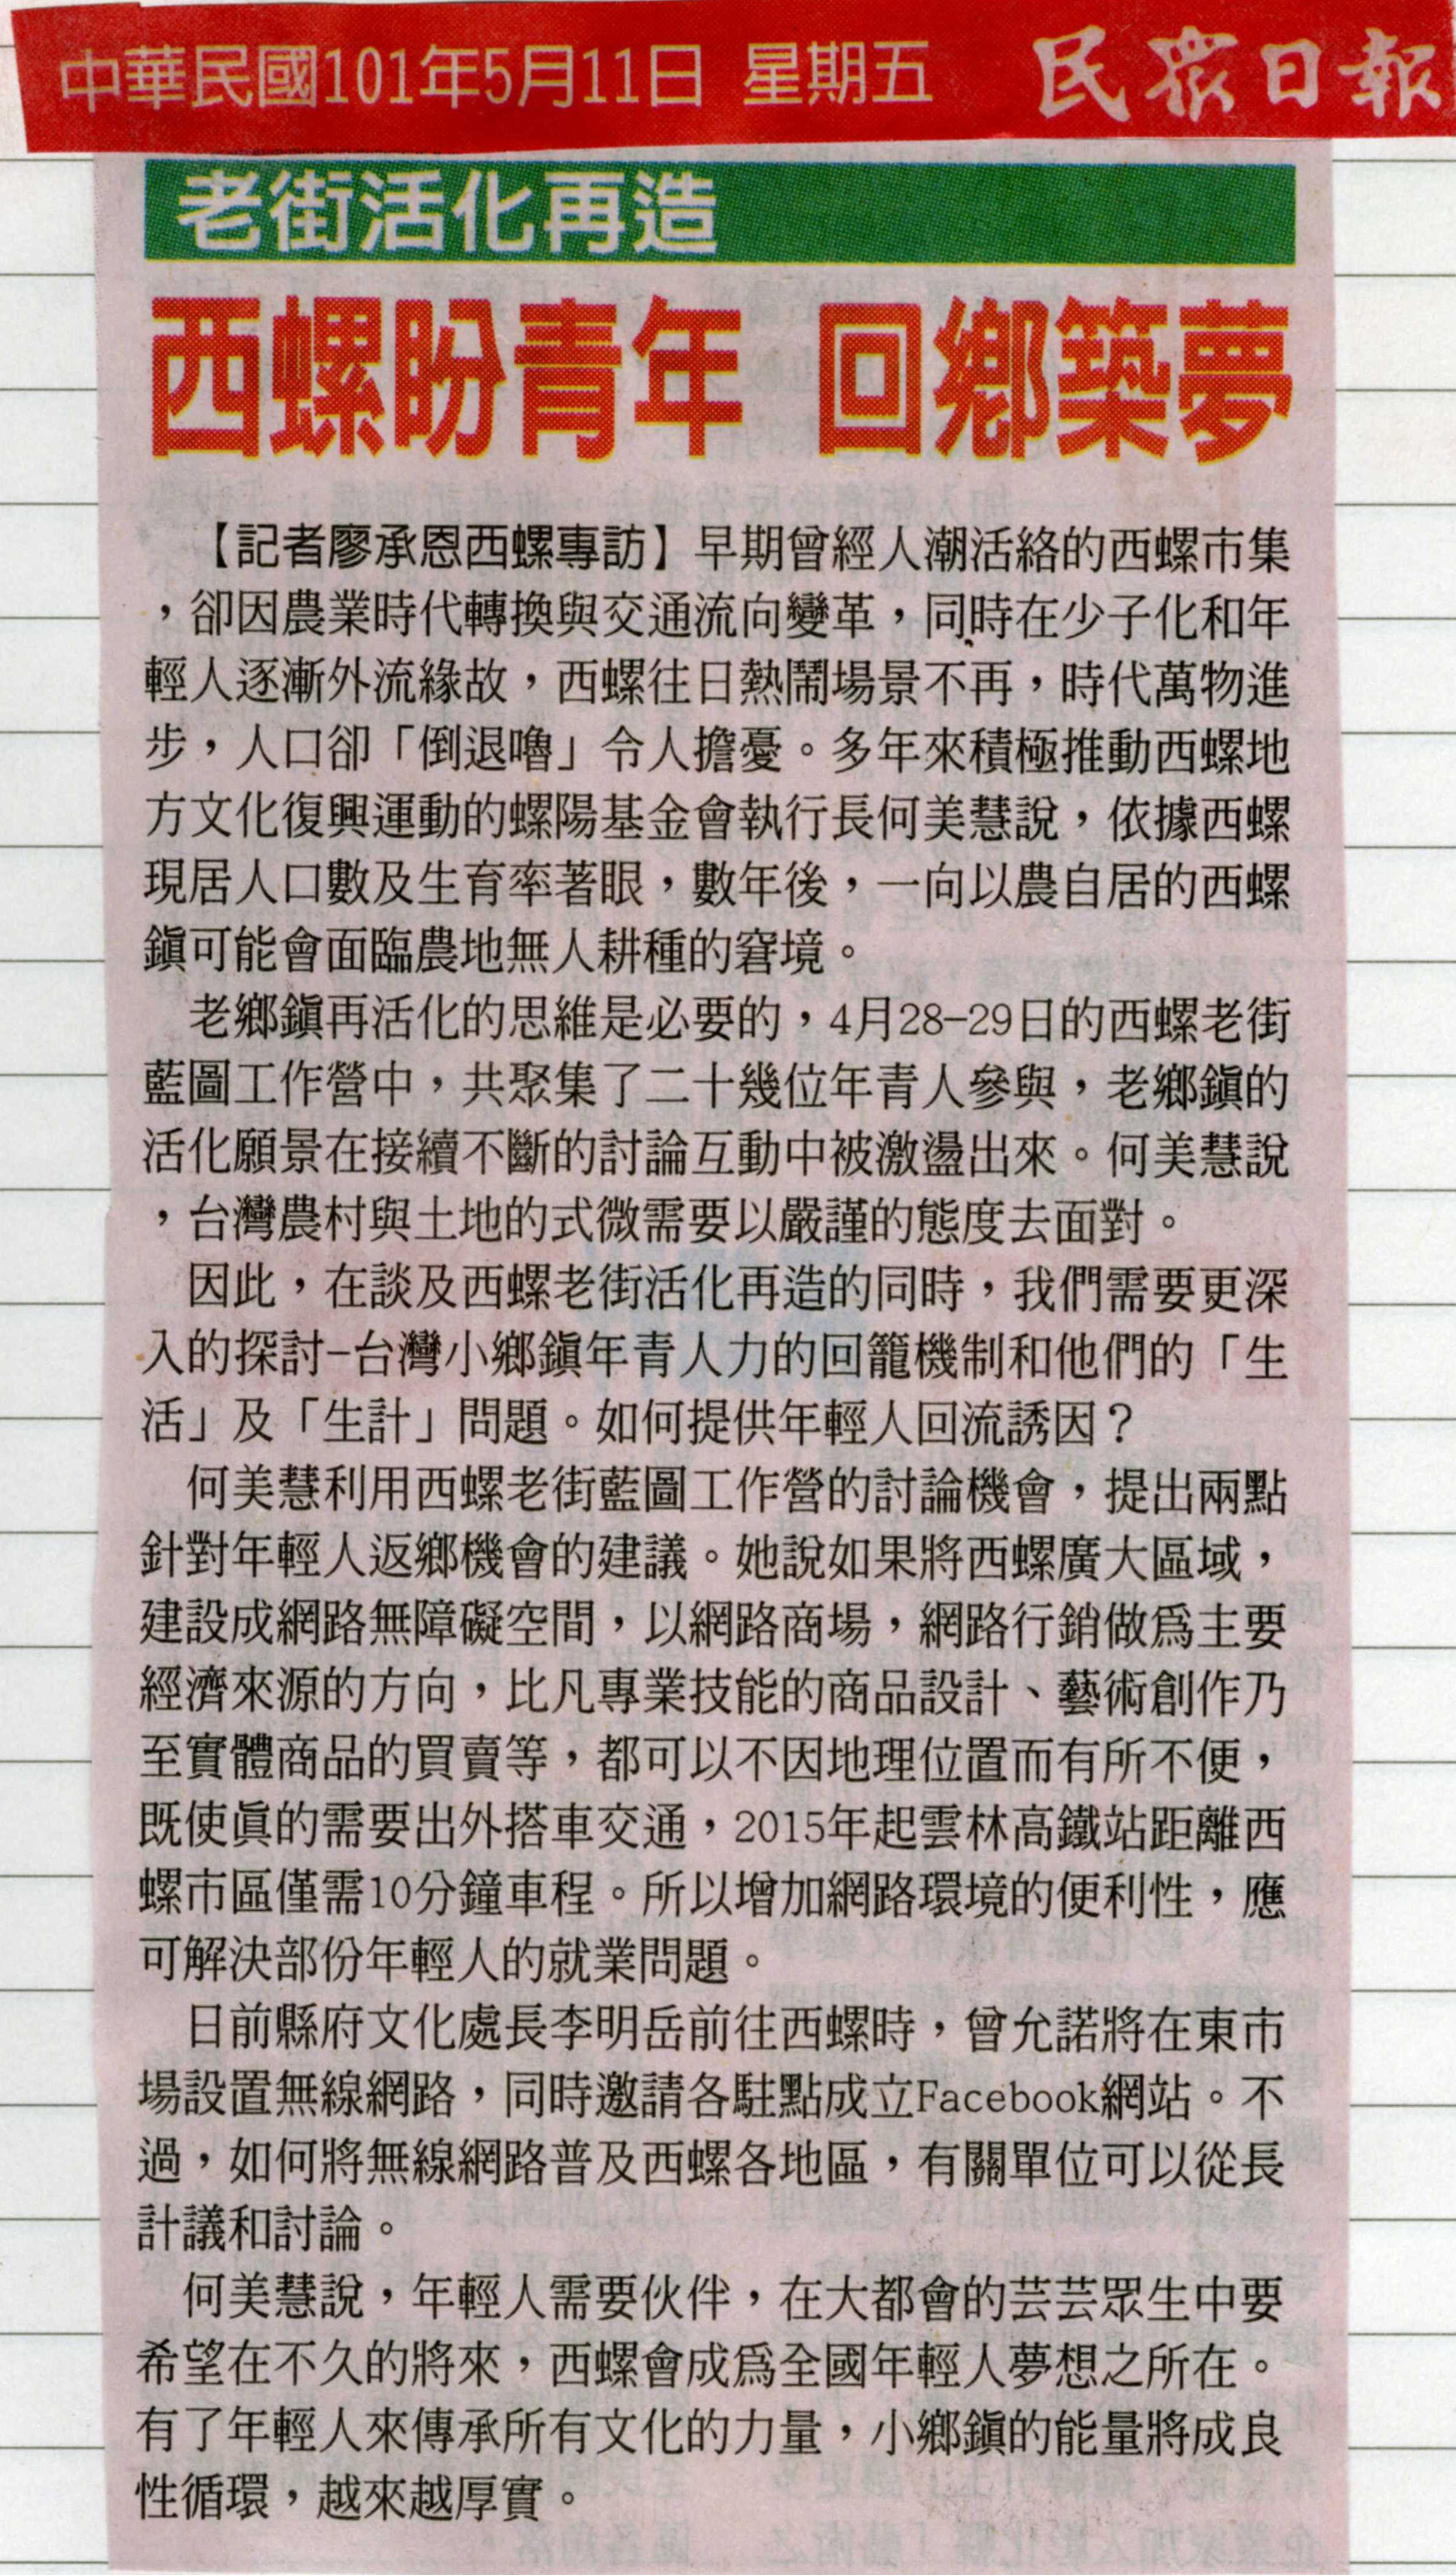 中華民國101年5月11日 星期五 民眾日報
老街活化再造
西螺盼青年 回鄉築夢
【記者廖承恩西螺專訪】早期曾經人潮活絡的西螺市集
，卻因農業時代轉換與交通流向變革，同時在少子化和年
輕人逐漸外流緣故，西螺往日熱鬧場景不再，時代萬物進
步，人口卻「倒退嚕」令人擔憂。多年來積極推動西螺地
方文化復興運動的螺陽基金會執行長何美慧說，依據西螺
現居人口數及生育率著眼，數年後，一向以農自居的西螺
鎮可能會面臨農地無人耕種的窘境。
老鄉鎮再活化的思維是必要的，4月28-29日的西螺老街
藍圖工作營中，共聚集了二十幾位年青人參與，老鄉鎮的
活化願景在接續不斷的討論互動中被激盪出來。何美慧說
，台灣農村與土地的式微需要以嚴謹的態度去面對。
因此，在談及西螺老街活化再造的同時，我們需要更深
入的探討-台灣小鄉鎮年青人力的回籠機制和他們的「生
活」及「生計」問題。如何提供年輕人回流誘因？
何美慧利用西螺老街藍圖工作營的討論機會，提出兩點
針對年輕人返鄉機會的建議。她說如果將西螺廣大區域，
建設成網路無障礙空間，以網路商場，網路行銷做為主要
經濟來源的方向，比凡專業技能的商品設計、藝術創作乃
至實體商品的買賣等，都可以不因地理位置而有所不便，
既使真的需要出外搭車交通，2015年起雲林高鐵站距離西
螺市區僅需10分鐘車程。所以增加網路環境的便利性，應
可解決部份年輕人的就業問題。
日前縣府文化處長李明岳前往西螺時，曾允諾將在東市
場設置無線網路，同時邀請各駐點成立Facebook網站。不
過，如何將無線網路普及西螺各地區，有關單位可以從長
計議和討論。
何美慧說，年輕人需要伙伴，在大都會的芸芸眾生中要
希望在不久的將來，西螺會成為全國年輕人夢想之所在。
有了年輕人來傳承所有文化的力量，小鄉鎮的能量將成良
性循環，越來越厚實。